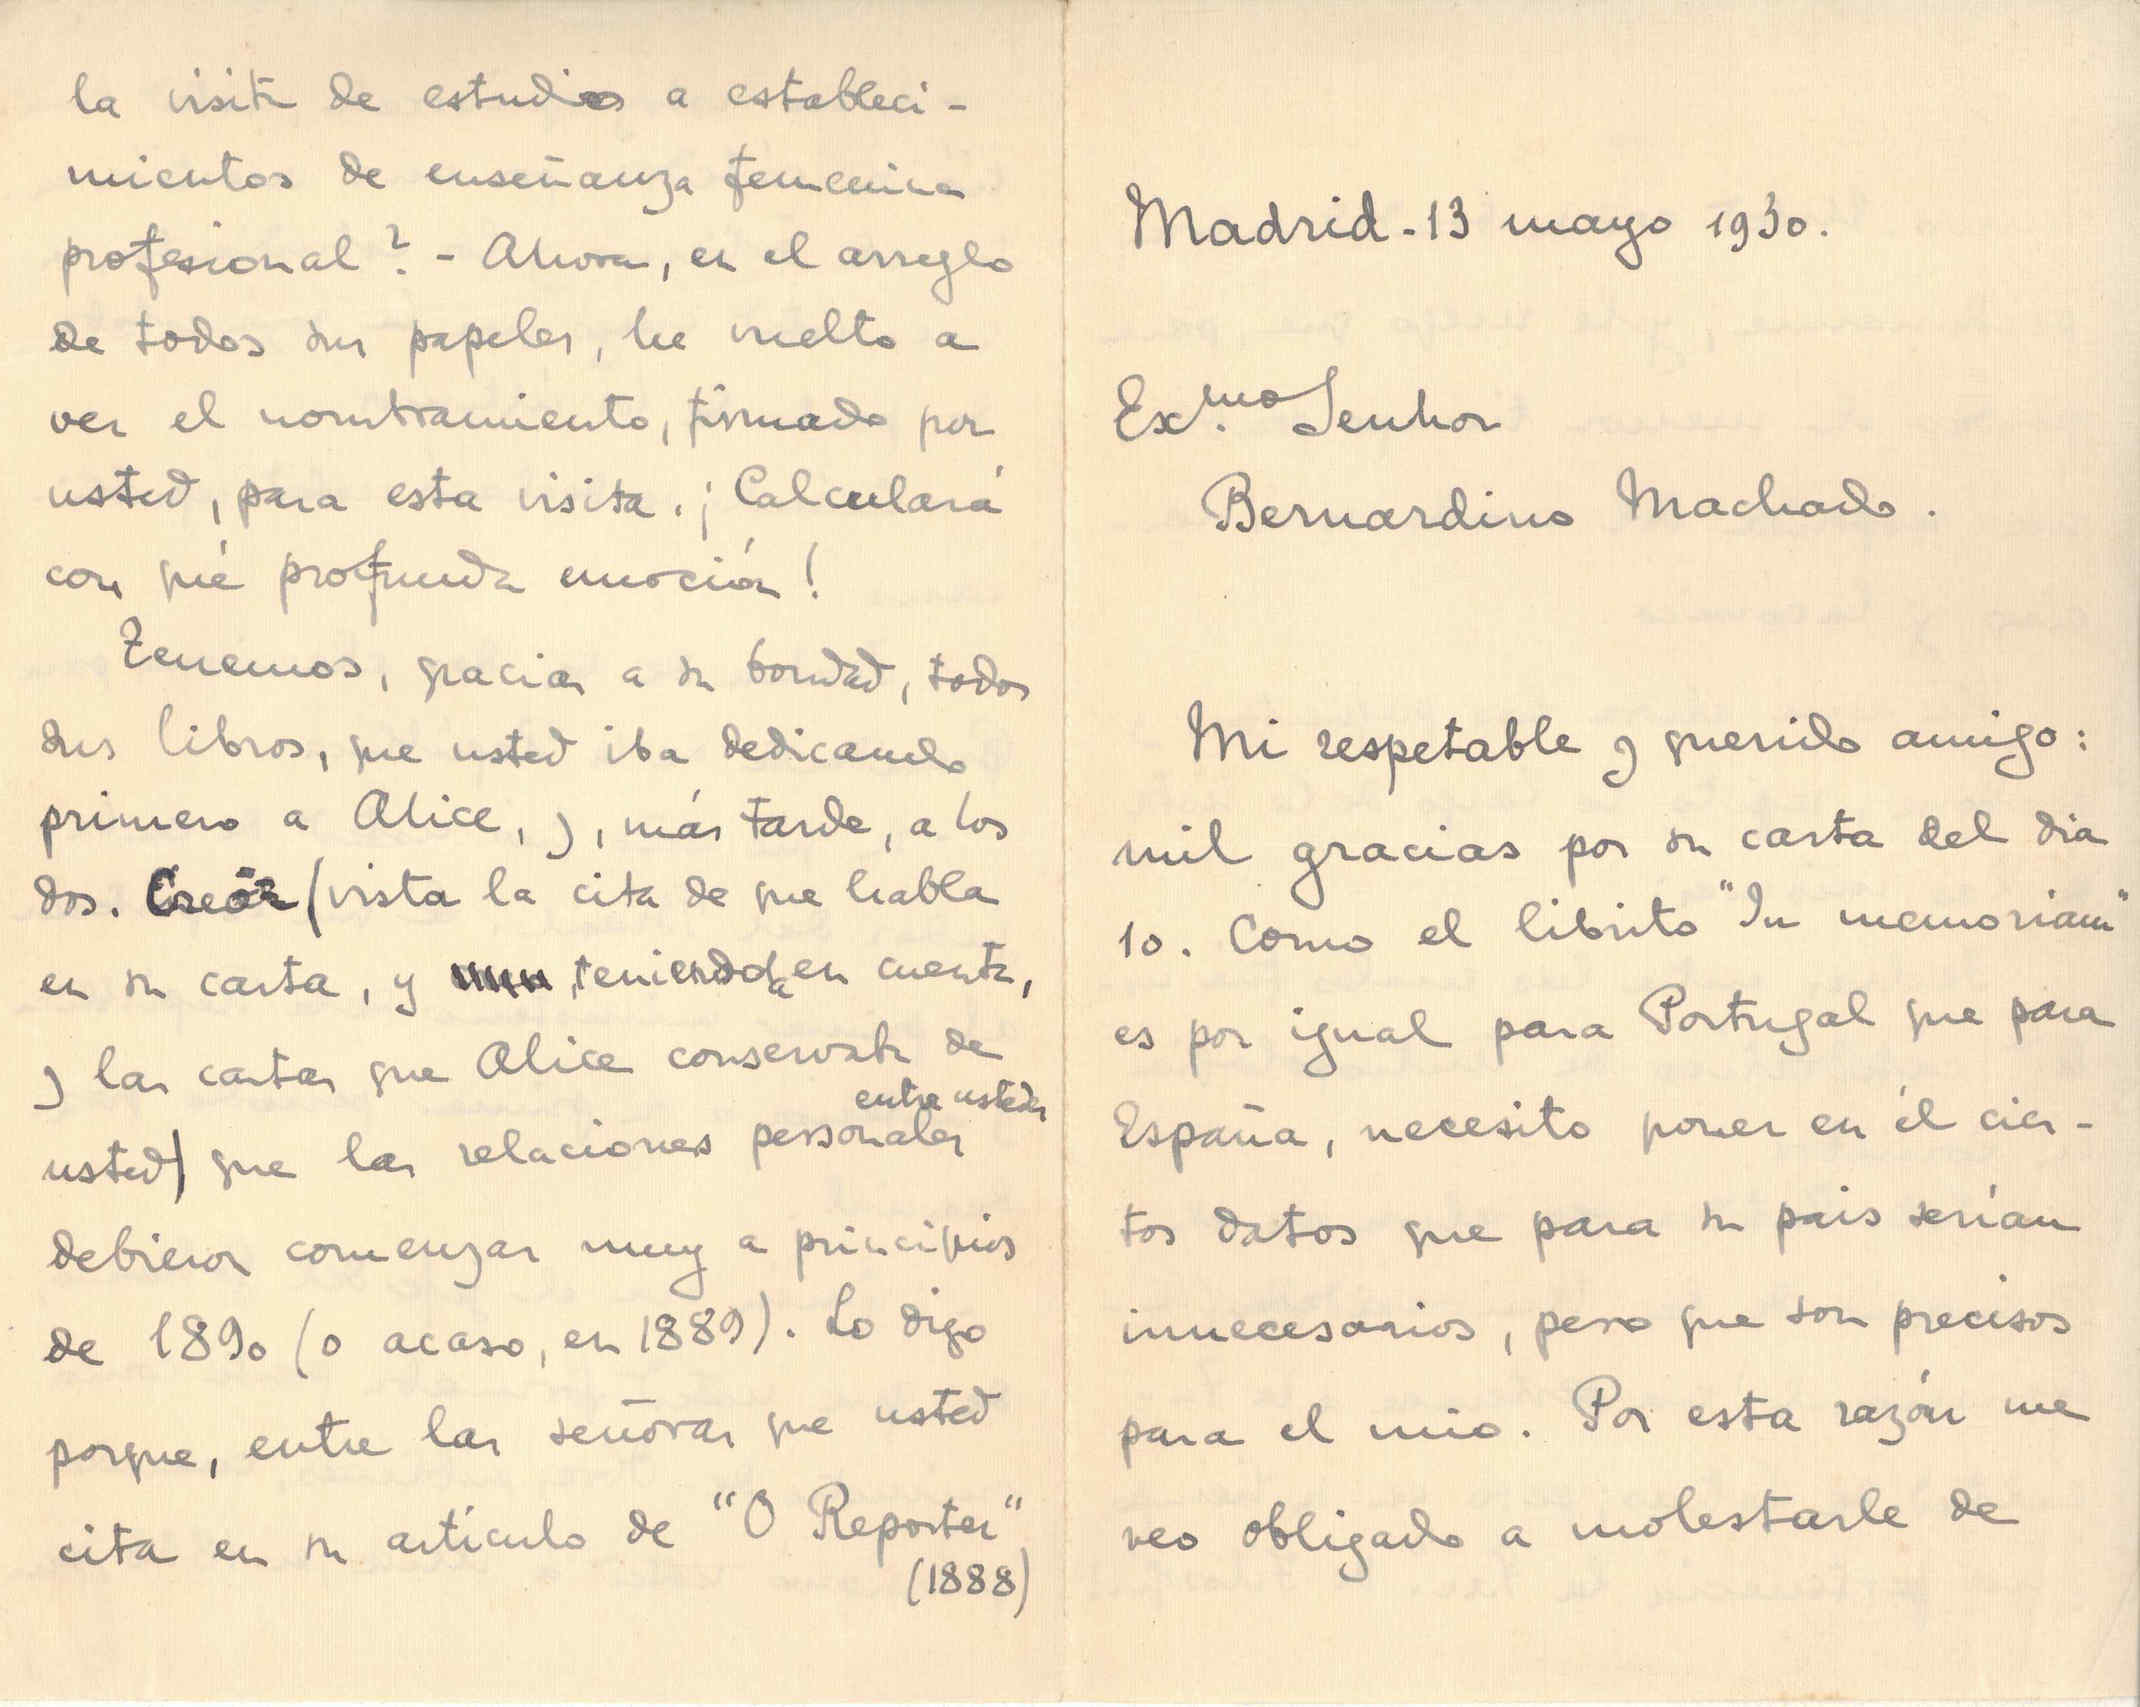 la visita de estudios a estableci-
mientos de enseñanza femenina
profesional? - Ahora, en el arreglo
de todos sus papeles, he vuelto a
ver el nombramiento, firmado por
usted, para esta visita. ¡Calculará
con qué profunda emoción!
Tenemos, gracias a su bondad, todos
sus libros, que usted iba dedicando
primero a Alice, y, más tarde, a los
dos. Creo (vista la cita de que habla
en su carta, y teniendola en cuenta,
y las cartas que Alice conservaba de
entre ustedes
usted) que las relaciones personales
debieron comenzar muy a principios
de 1890 (o acaso, en 1889). Lo digo
porque, entre las señoras que usted
cita en su artículo de "O Reporter"
(1888)
Madrid - 13 mayo 1930.
Ex.mo Senhor
Bernardino Machado.
Mi respetable y querido amigo:
mil gracias por su carta del dia
10. Como el librito "In memoriam"
es por igual para Portugal que para
España, necesito poner en él cier-
tos datos que para su pais serían
innecesarios, pero que son precisos
para el mio. Por esta razón me
veo obligado a molestarle de